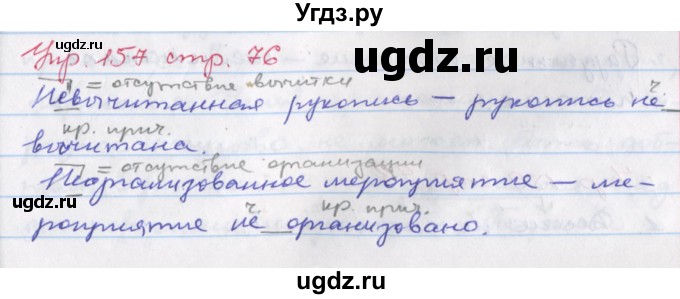 Угдз.ру
Упр. 157 стр. 76
= отсутствие вычитки
Невычитанная рукопись – рукопись не
ч.
кр. прич.
вычитана.
= отсутствие организации
Неорганизованное мероприятие – ме-
ч. кр. прич.
роприятие не организовано.
ugdz.ru
ugdz.ru
ugdz.ru
ugdz.ru
ugdz.ru
ugdz.ru